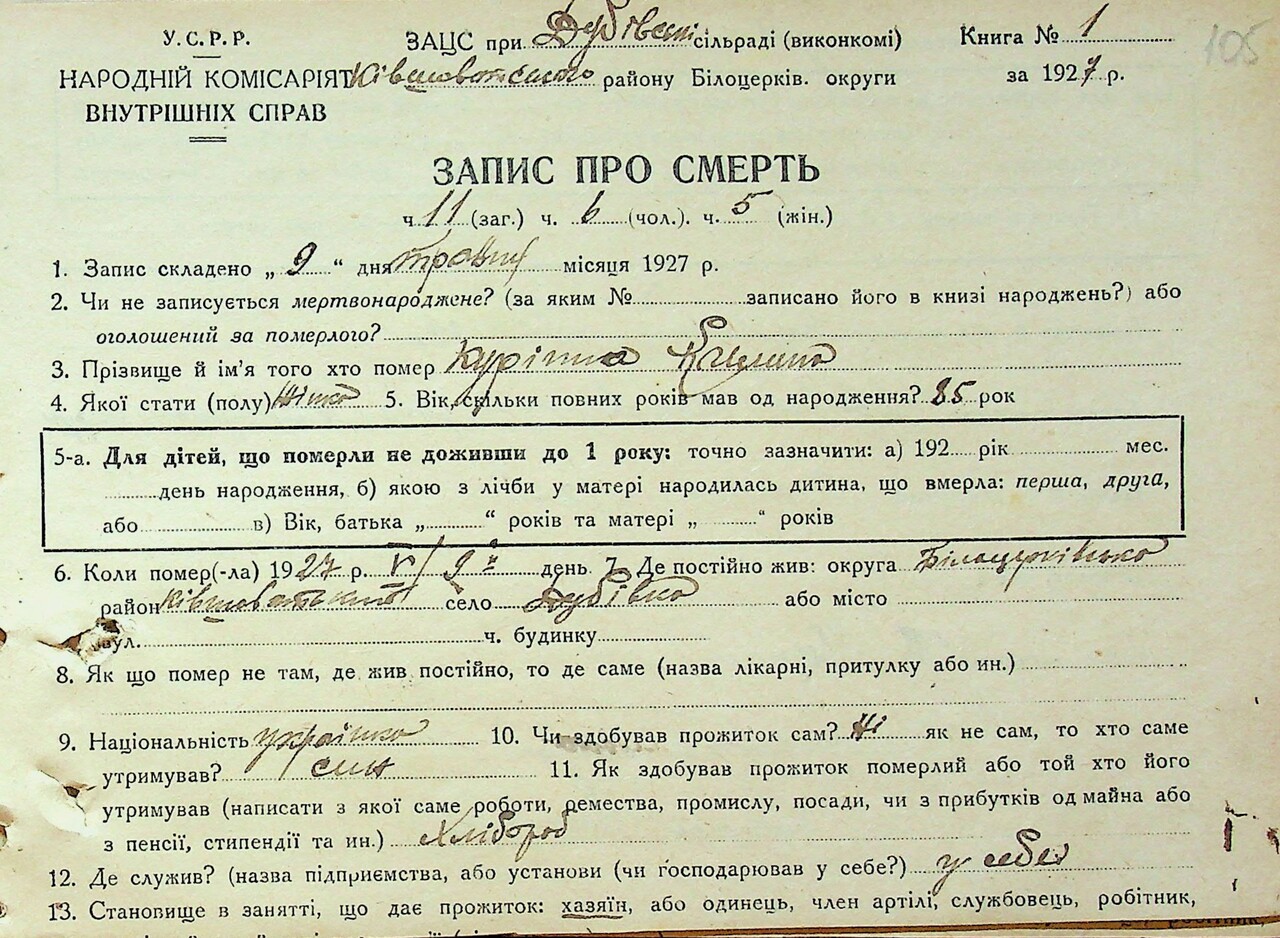 У.С.Р.Р.
НАРОДНІЙ КОМІСАРІЯТ
ВНУТРІШНІХ СПРАВ
ЗАЦС при Дубівській сільраді (виконкомі)
Ківшоватського району Білоцерків. округи
Книга № 1
за 1927 р.
105
ЗАПИС ПРО СМЕРТЬ
ч 11 (заг.) ч. 6 (чол.). ч. 5 (жін.)
1. Запис складено „ 9 “ дня травня місяця 1927 р.
2. Чи не записується мертвонароджене? (за яким № записано його в книзі народжень?) або
оголошений за померлого?
3. Прізвище й ім'я того хто помер
4. Якої стати (полу) жінка 5. Вік, скільки повних років мав од народження? 85 рок
5-а. Для дітей, що померли не доживши до 1 року: точно зазначити: а) 192 рік мес.
день народження, б) якою з лічби у матері народилась дитина, що вмерла: перша, друга,
або в) Вік, батька „ “ років та матері „ “ років
6. Коли помер(-ла) 1927 р. V/9 день 7. Де постійно жив: округа Білоцерківська
район Ківшоватський село Дубівка або місто
вул. ч. будинку
8. Як що помер не там, де жив постійно, то де саме (назва лікарні, притулку або ин.)
9. Національність українка 10. Чи здобував прожиток сам? Ні як не сам, то хто саме
утримував? син 11. Як здобував прожиток померлий або той хто його
утримував (написати з якої саме роботи, ремества, промислу, посади, чи з прибутків од майна або
з пенсії, стипендії та ин.) Хлібороб
12. Де служив? (назва підприємства, або установи (чи господарював у себе?) у себе
13. Становище в занятті, що дає прожиток: хазяїн, або одинець, член артілі, службовець, робітник,